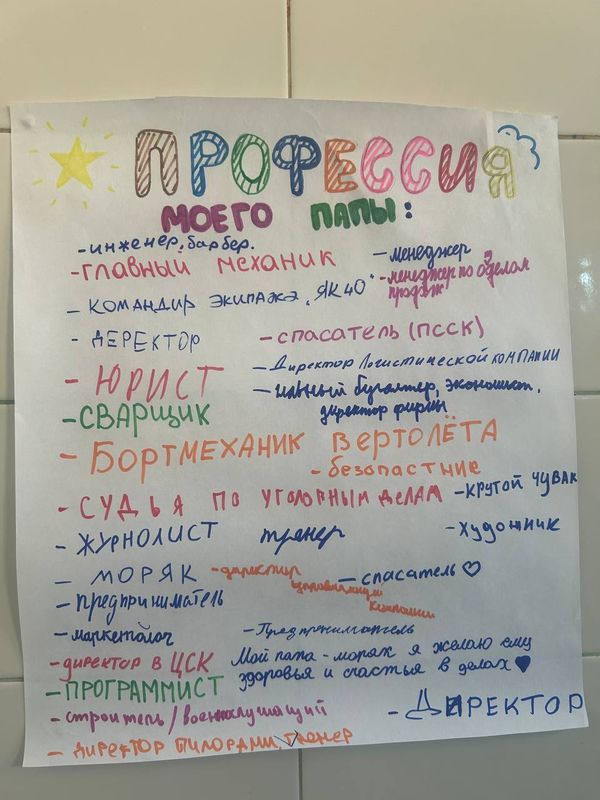 ПРОФЕССИЯ
МОЕГО ПАПЫ:
-инженер, барбер.
- менеджер
-главный механик
-менеджер по отделам
продаж
- командир экипажа "ЯК 40"
- деректор
-спасатель (ПССК)
- Директор Логистической компании
- ЮРИСТ
- главный бугалтер, экономист,
директор фирмы
-СВАРЩИК
- Бортмеханик вертолёта
- безопастник
- Судья по уголовным делам
-крутой чувак
- журнолист
тренер
-художник
- моряк
-директир
управляющий
компании
- спасатель ♡
- предприниматель
- маркетолог
-Предпрениматель
-директор в ЦСК
Мой папа - моряк я желаю ему
здоровья и счастья в делах ♥
-ПРОГРАММИСТ
-строитель/военнслужащий
- ДИРЕКТОР
- директор пилорами, тренер